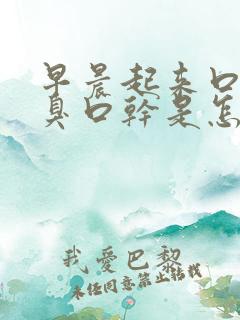 早晨起来口
臭口幹是怎
我愛巴黎
未经同意禁止转载